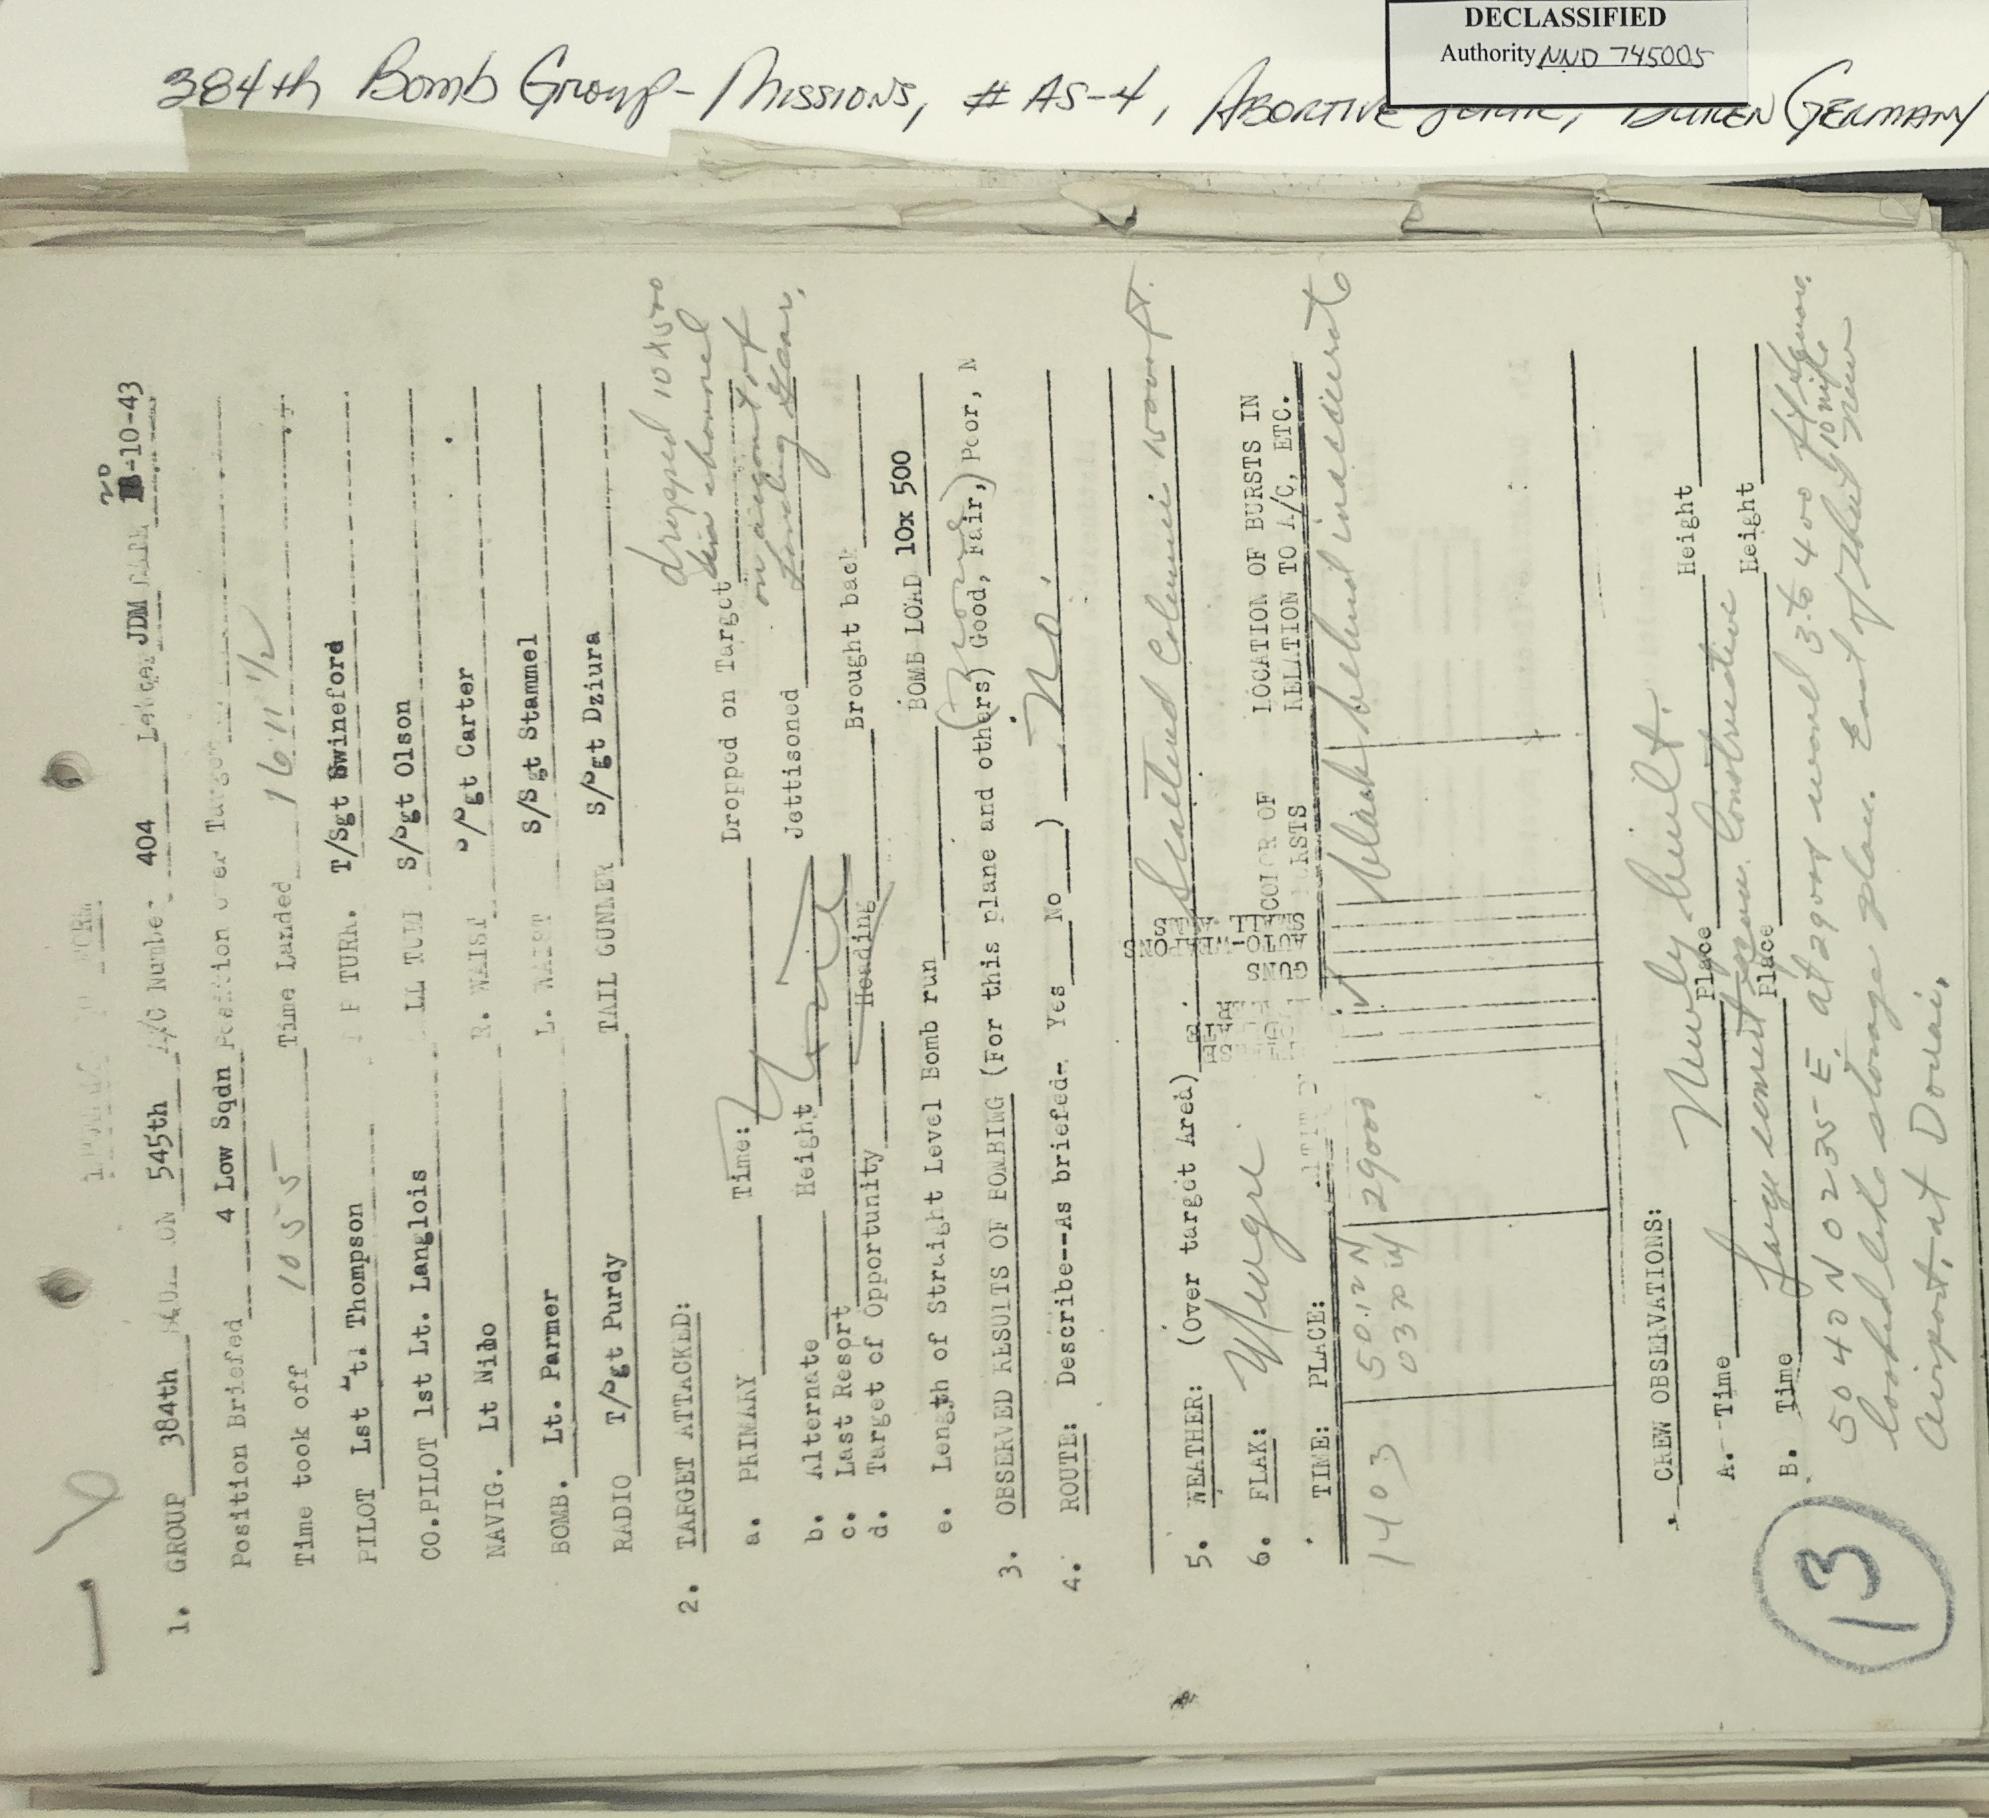 DECLASSIFIED
Authority NND 745005
384th Bomb Group - Missions, # AS-4, Abortive Duren Germany
1. GROUP 384th 545th A/C Number 404 Letter JDM 20-10-43
Position Briefed 4 Low Sqdn Position over Target
Time took off 1055 Time Landed 1611 1/2
PILOT Lst Lt. Thompson TURR. T/Sgt Swineford
CO.PILOT 1st Lt. Langlois S/Sgt Olson
NAVIG. Lt Nimo R. WAIST S/Sgt Carter
BOMB. Lt. Parmer L. WAIST S/Sgt Stammel
RADIO T/Sgt Purdy TAIL GUNNER S/Sgt Dziura
2. TARGET ATTACKED:
dropped 10x500
in channel
a. PRIMARY Time: Dropped on Target
on account of
b. Alternate Height Jettisoned landing gear.
c. Last Resort
d. Target of Opportunity Heading Brought back
BOMB LOAD 10x 500
e. Length of Straight Level Bomb run
3. OBSERVED RESULTS OF BOMBING (For this plane and others) Good, Fair, Poor, N
4. ROUTE: Describe--As briefed- Yes No ) No.
5. WEATHER: (Over target Area) Scattered
6. FLAK: Meagre
GUNS
AUTO-WEAPONS
SMALL ARMS
COLOR OF BURSTS
LOCATION OF BURSTS IN
RELATION TO A/C, ETC.
TIME: PLACE:
1403 50.12 N 29000 ✓ black behind inaccurate
CREW OBSERVATIONS: Newly built.
A. Time Place Height
Large cement Construction
B. Time Place Height
50 40 N 0235 E. at 29000 3 to 400
looked like storage place. East of that
Airport, at Douai.
13